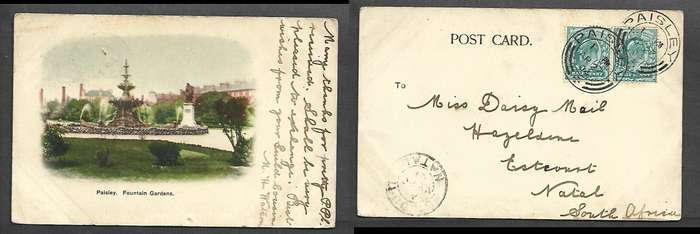 Paisley. Fountain Gardens.
Many thanks for pretty P.Pd.
received. Shall be very
pleased to exchange. Best
wishes from your
M.
POST CARD.
PAISLEY
PAISLEY
To
Miss Daisy Mail
Hazeldene
Estcourt
Natal
South Africa
NATAL